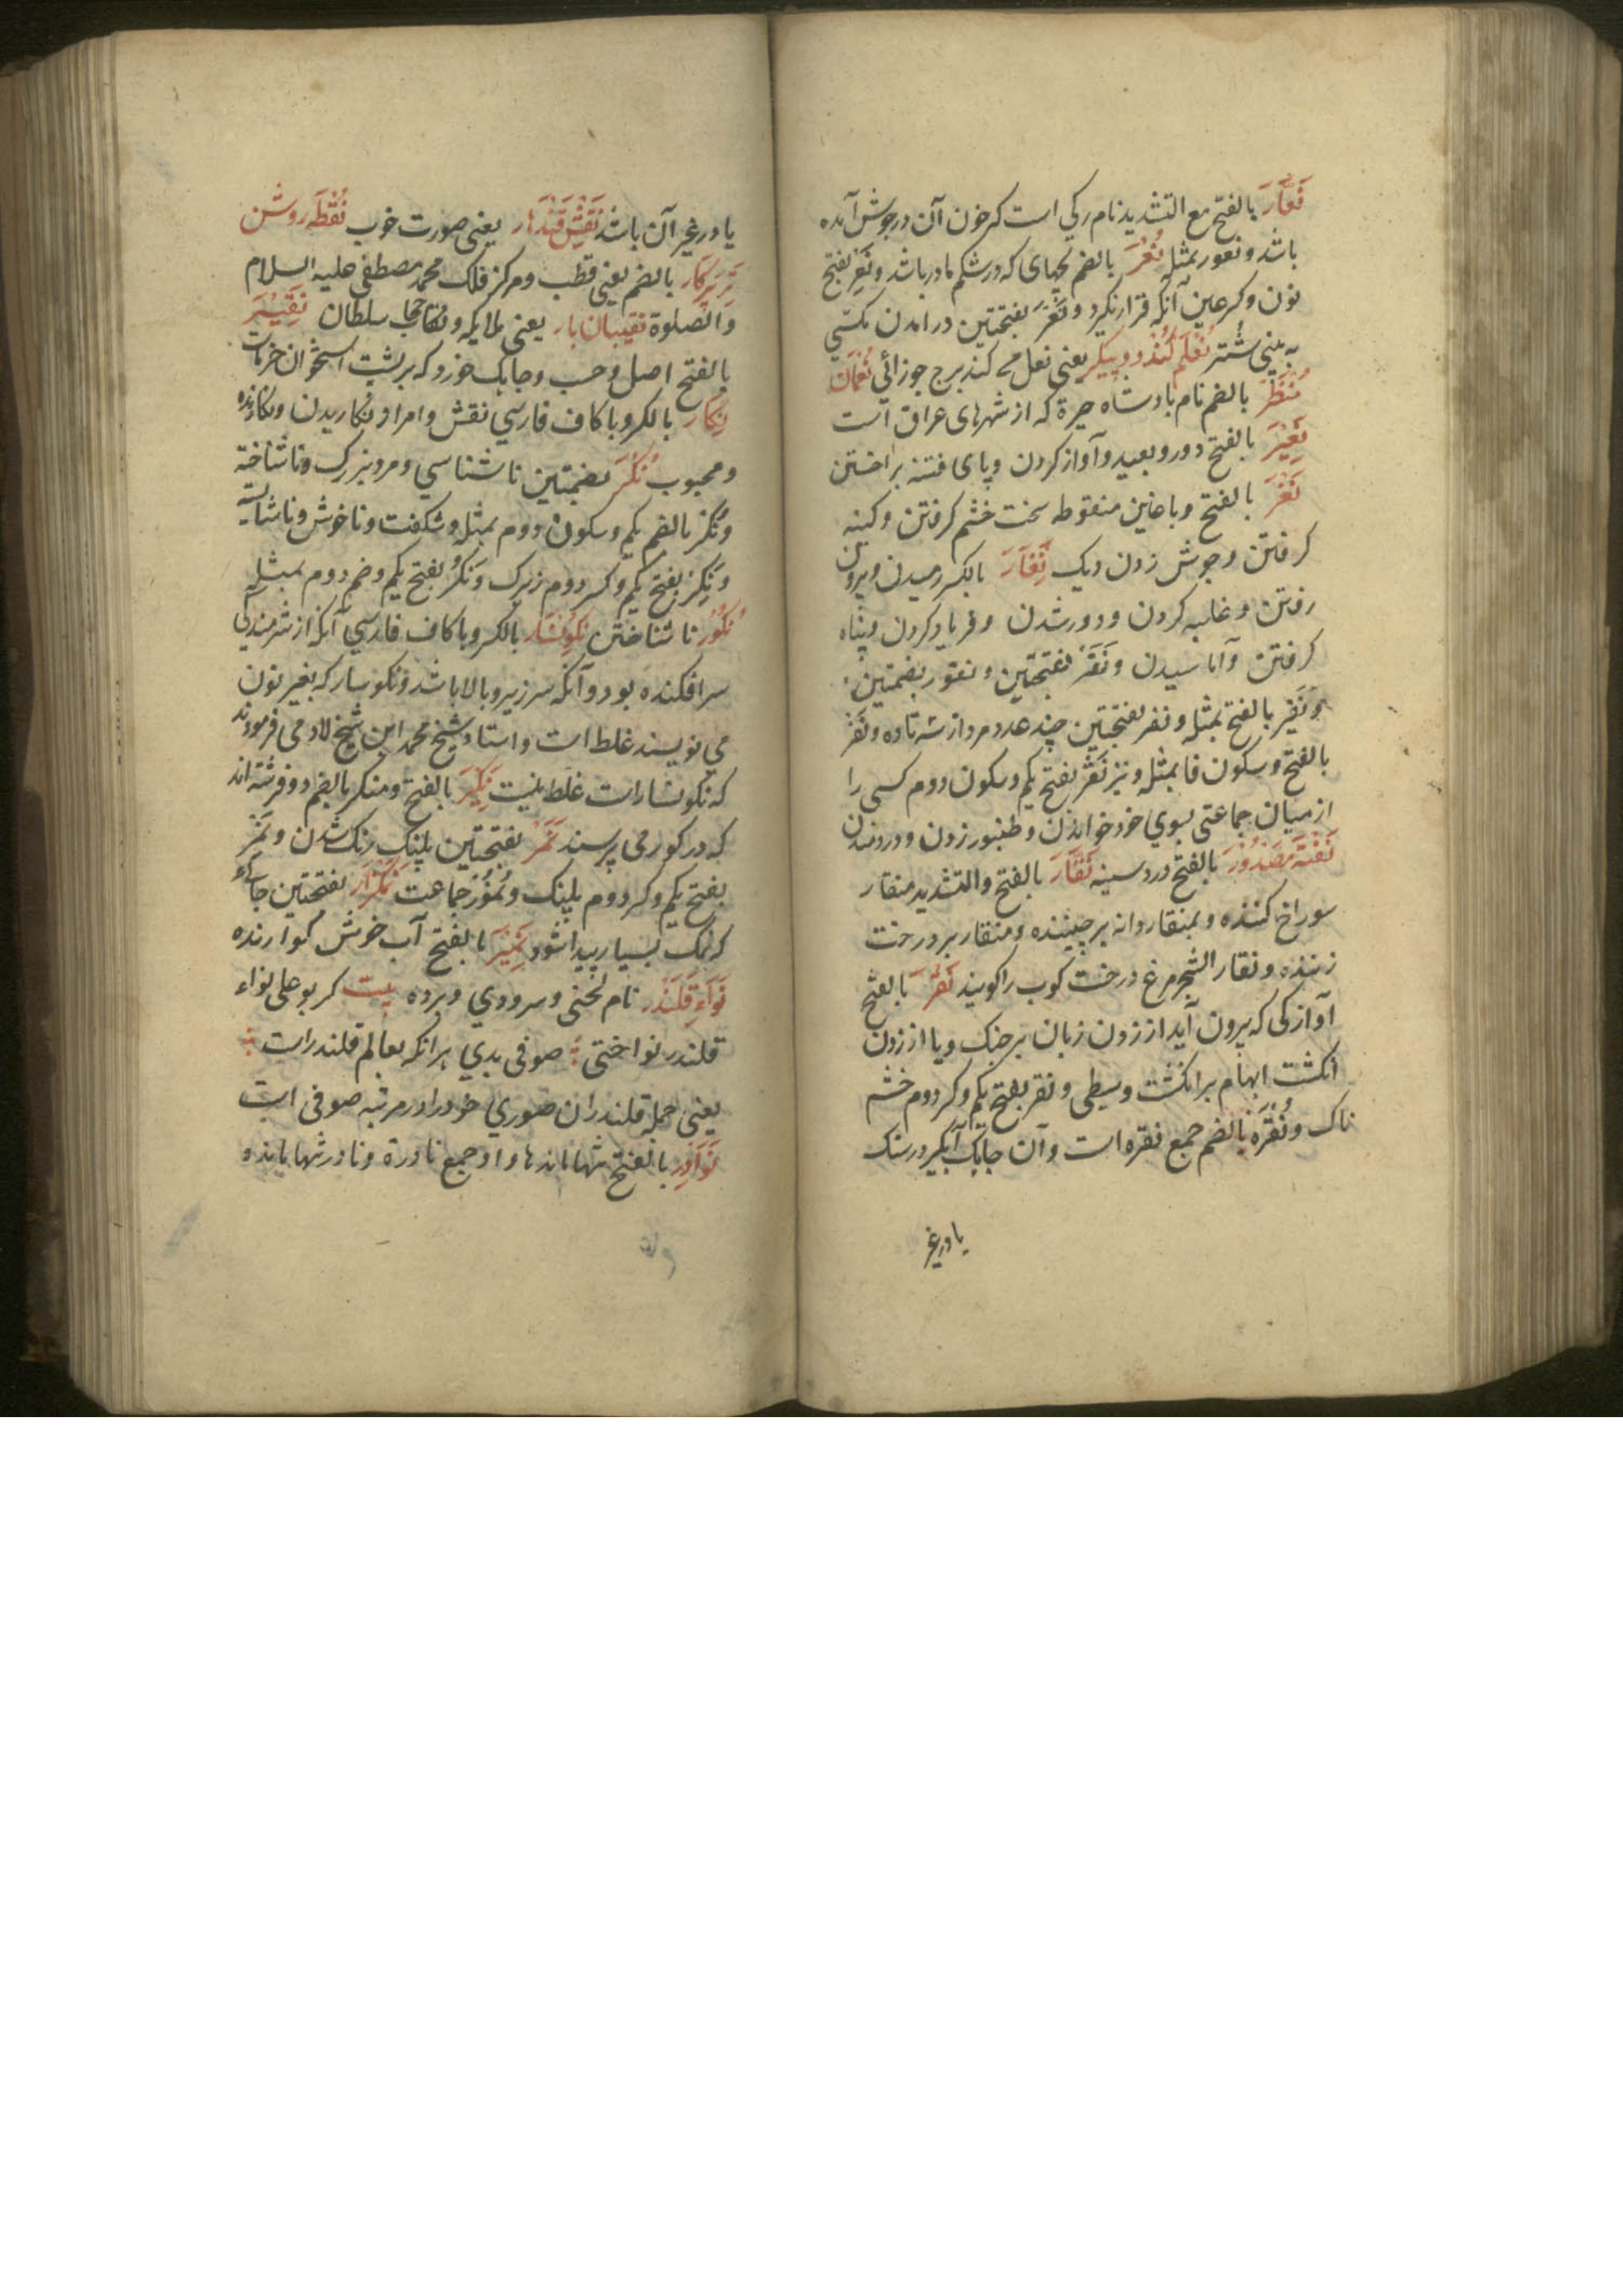 نَعَّارَ بالفتح مع التشدید نام رکی است که خون آن در جوش آمده
باشد و نعور بمثله نُعَرَ بالضم بچهای که در شکم مادر باشد و نَعِر بفتح
نون و کسر عین آنکه قرار نکیرد و نَعَرَ بفتحتین در آمدن مکسی
به بینی شتر نعلم کند دو پیکر یعنی نعل می کند برج جوزائی نُعمان
مُنظَر بالضم نام پادشاه حیرة که از شهرهای عراق است
نَعِیْرَ بالفتح دور و بعید و آواز کردن و پای فتنه بر اختن
نَغَرَ بالفتح و با غین منقوطه سخت خشم کرفتن و کینه
کرفتن و جوش زدن دیک نِفَارَ بالکسر رمیدن و بیرون
رفتن و غلبه کردن و دور شدن و فریاد کردن و پناه
کرفتن و آماسیدن و نَفَرَ بفتحتین و نفور بضمتین
و نَفِیر بالفتح بمثله و نفر بفتحتین چند عدد مرد از سه تا ده و نَفْر
بالفتح و سکون فا بمثله و نیز نَقْر بفتح یکم و سکون دوم کسی را
از میان جماعتی بسوی خود خواندن و طنبور زدن و در دمیدن
نَفْثَهٔ مَصْدُوْرَ بالفتح درد سینه نَقَّارَ بالفتح والتشدید منقار
سوراخ کننده و بمنقار دانه برچیننده و منقار بر درخت
زننده و نقار الشجر مرغ درخت کوب را کویند نَقْرَ بالفتح
آوازکی که بیرون آید از زدن زبان بر حنک و یا از زدن
انکشت ابهام بر انکشت وسطی و نقر بفتح یکم و کسر دوم خشم
ناک و نُقَرَه بالضم جمع نقره است و آن جایک آبکیر در سنک
یا در غیر
یا در غیر آن باشد نَقْشِ قَنْدَهار یعنی صورت خوب نُقْطَه روشن
تر پرکار بالضم یعنی قطب و مرکز فلک محمد مصطفی علیه السلام
والصلوة نقیبان بار یعنی ملایکه و حجاب سلطان نَقِیْرَ
بالفتح اصل و حسب و جایک خورد که بر پشت استخوان خرماست
نِکار بالکسر و با کاف فارسی نقش و امر از نکاریدن و نکارنده
و محبوب نُکُرَ بضمتین ناشناسی و مرد بزرک و ناشناخته
و نُکْر بالضم یکم و سکون دوم بمثله و شکفت و ناخوش و ناشایسته
و نَکِر بفتح یکم و کسر دوم زیرک و نَکُر بفتح یکم و ضم دوم بمثله
نُکُوْر ناشناختن نکونسار بالکسر و با کاف فارسی آنکه از شرمندکی
سرافکنده بود و آنکه سر زیر و پا بالا باشد و نکوسار که بغیر نون
می نویسند غلط است و استاد شیخ محمد ابن شیخ لاد می فرمودند
که نکوسار است غلط نیست نَکِیْرَ بالفتح و منکر بالضم دو فرشته اند
که در کور می پرسند نَمَرَ بفتحتین پلنک رنک شدن و نَمِر
بفتح یکم و کسر دوم پلنک و نُمُوْر جماعت نَمَکْزَار بفتحتین جای
که نمک بسیار پیدا شود نَمِیْرَ بالفتح آب خوش کوارنده
نَوَاءِ قَلَنْدَر نام لحنی و سرودی و پرده بیت کر بو علی نواء
قلندر نواختی صوفی بدی هرانکه بعالم قلندر است
یعنی جمله قلندران صوری خود را در مرتبه صوفی است
نَوَادِر بالفتح تنها ماندها و او جمع نادرة و نادر تنها مانده